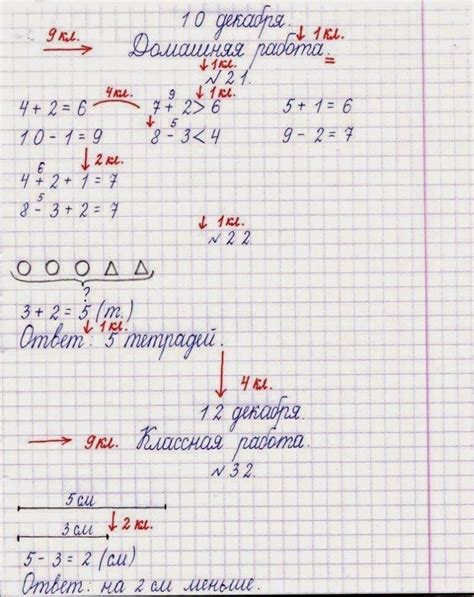 10 декабря.
9 кл. Домашняя работа. 1 кл.
1 кл.
№21.
4 кл. 9 1 кл.
4+2=6 7+2>6 5+1=6
5
10-1=9 8-3<4 9-2=7
2 кл.
6
4+2+1=7
5
8-3+2=7
1 кл.
№22
?
3+2=5 (т.)
1 кл.
Ответ: 5 тетрадей.
4 кл.
12 декабря.
9 кл. Классная работа.
№32.
5 см
3 см 2 кл.
5-3=2 (см)
Ответ: на 2 см меньше.